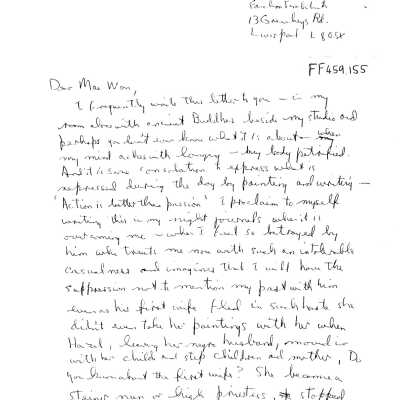 13 Gambier Rd.
Liverpool L8
FF459.155
Dear Mae Wan,
I frequently write this letter to you – in my
room alone with ancient Buddhas beside my studio and
perhaps you don't even know what it is about – when
my mind aches with longing – my body petrified.
And it is some consolation to express what is
repressed during the day by painting and writing –
'Action is better than passion' I proclaim to myself
writing this in my night journals when it is
overcoming me – when I feel so betrayed by
him who treats me now with such an intolerable
casualness and imagines that I will have the
suppression not to mention my past with him
even as his first wife fled in such haste she
didn't even take her paintings with her when
Hazel, leaving her negro husband, moved in
with her child and step children and mother, Do
you know about the first wife? She became a
nun or high priestess, stopped